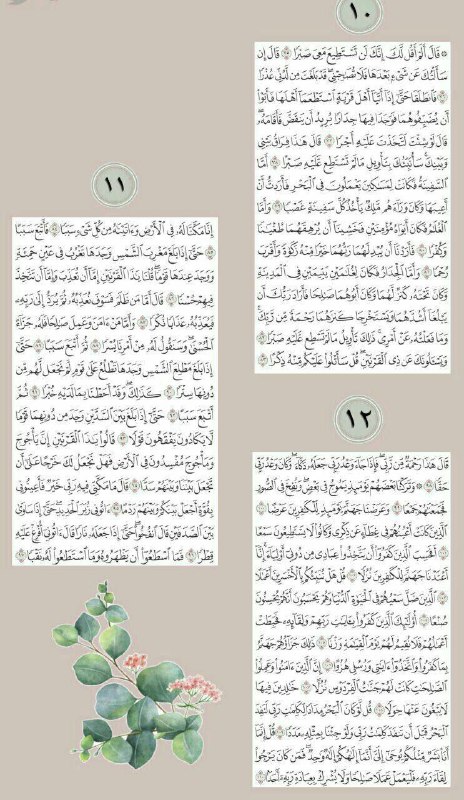 ١٠
۞ قَالَ أَلَمْ أَقُل لَّكَ إِنَّكَ لَن تَسْتَطِيعَ مَعِىَ صَبْرًا ٧٥ قَالَ إِن
سَأَلْتُكَ عَن شَىْءٍۭ بَعْدَهَا فَلَا تُصَٰحِبْنِى قَدْ بَلَغْتَ مِن لَّدُنِّى عُذْرًا
٧٦ فَٱنطَلَقَا حَتَّىٰٓ إِذَآ أَتَيَآ أَهْلَ قَرْيَةٍ ٱسْتَطْعَمَآ أَهْلَهَا فَأَبَوْا۟
أَن يُضَيِّفُوهُمَا فَوَجَدَا فِيهَا جِدَارًا يُرِيدُ أَن يَنقَضَّ فَأَقَامَهُۥ
قَالَ لَوْ شِئْتَ لَتَّخَذْتَ عَلَيْهِ أَجْرًا ٧٧ قَالَ هَٰذَا فِرَاقُ بَيْنِى
وَبَيْنِكَ سَأُنَبِّئُكَ بِتَأْوِيلِ مَا لَمْ تَسْتَطِع عَّلَيْهِ صَبْرًا ٧٨ أَمَّا
ٱلسَّفِينَةُ فَكَانَتْ لِمَسَٰكِينَ يَعْمَلُونَ فِى ٱلْبَحْرِ فَأَرَدتُّ أَنْ
أَعِيبَهَا وَكَانَ وَرَآءَهُم مَّلِكٌ يَأْخُذُ كُلَّ سَفِينَةٍ غَصْبًا ٧٩ وَأَمَّا
ٱلْغُلَٰمُ فَكَانَ أَبَوَاهُ مُؤْمِنَيْنِ فَخَشِينَآ أَن يُرْهِقَهُمَا طُغْيَٰنًا
وَكُفْرًا ٨٠ فَأَرَدْنَآ أَن يُبْدِلَهُمَا رَبُّهُمَا خَيْرًا مِّنْهُ زَكَوٰةً وَأَقْرَبَ
رُحْمًا ٨١ وَأَمَّا ٱلْجِدَارُ فَكَانَ لِغُلَٰمَيْنِ يَتِيمَيْنِ فِى ٱلْمَدِينَةِ
وَكَانَ تَحْتَهُۥ كَنزٌ لَّهُمَا وَكَانَ أَبُوهُمَا صَٰلِحًا فَأَرَادَ رَبُّكَ أَن
يَبْلُغَآ أَشُدَّهُمَا وَيَسْتَخْرِجَا كَنزَهُمَا رَحْمَةً مِّن رَّبِّكَ
وَمَا فَعَلْتُهُۥ عَنْ أَمْرِى ذَٰلِكَ تَأْوِيلُ مَا لَمْ تَسْطِع عَّلَيْهِ صَبْرًا ٨٢
وَيَسْـَٔلُونَكَ عَن ذِى ٱلْقَرْنَيْنِ قُلْ سَأَتْلُوا۟ عَلَيْكُم مِّنْهُ ذِكْرًا ٨٣
١١
إِنَّا مَكَّنَّا لَهُۥ فِى ٱلْأَرْضِ وَءَاتَيْنَٰهُ مِن كُلِّ شَىْءٍ سَبَبًا ٨٤ فَأَتْبَعَ سَبَبًا
٨٥ حَتَّىٰٓ إِذَا بَلَغَ مَغْرِبَ ٱلشَّمْسِ وَجَدَهَا تَغْرُبُ فِى عَيْنٍ حَمِئَةٍ
وَوَجَدَ عِندَهَا قَوْمًا قُلْنَا يَٰذَا ٱلْقَرْنَيْنِ إِمَّآ أَن تُعَذِّبَ وَإِمَّآ أَن تَتَّخِذَ
فِيهِمْ حُسْنًا ٨٦ قَالَ أَمَّا مَن ظَلَمَ فَسَوْفَ نُعَذِّبُهُۥ ثُمَّ يُرَدُّ إِلَىٰ رَبِّهِۦ
فَيُعَذِّبُهُۥ عَذَابًا نُّكْرًا ٨٧ وَأَمَّا مَنْ ءَامَنَ وَعَمِلَ صَٰلِحًا فَلَهُۥ جَزَآءً
ٱلْحُسْنَىٰ وَسَنَقُولُ لَهُۥ مِنْ أَمْرِنَا يُسْرًا ٨٨ ثُمَّ أَتْبَعَ سَبَبًا ٨٩ حَتَّىٰٓ
إِذَا بَلَغَ مَطْلِعَ ٱلشَّمْسِ وَجَدَهَا تَطْلُعُ عَلَىٰ قَوْمٍ لَّمْ نَجْعَل لَّهُم مِّن
دُونِهَا سِتْرًا ٩٠ كَذَٰلِكَ وَقَدْ أَحَطْنَا بِمَا لَدَيْهِ خُبْرًا ٩١ ثُمَّ
أَتْبَعَ سَبَبًا ٩٢ حَتَّىٰٓ إِذَا بَلَغَ بَيْنَ ٱلسَّدَّيْنِ وَجَدَ مِن دُونِهِمَا قَوْمًا
لَّا يَكَادُونَ يَفْقَهُونَ قَوْلًا ٩٣ قَالُوا۟ يَٰذَا ٱلْقَرْنَيْنِ إِنَّ يَأْجُوجَ
وَمَأْجُوجَ مُفْسِدُونَ فِى ٱلْأَرْضِ فَهَلْ نَجْعَلُ لَكَ خَرْجًا عَلَىٰٓ أَن
تَجْعَلَ بَيْنَنَا وَبَيْنَهُمْ سَدًّا ٩٤ قَالَ مَا مَكَّنِّى فِيهِ رَبِّى خَيْرٌ فَأَعِينُونِى
بِقُوَّةٍ أَجْعَلْ بَيْنَكُمْ وَبَيْنَهُمْ رَدْمًا ٩٥ ءَاتُونِى زُبَرَ ٱلْحَدِيدِ حَتَّىٰٓ إِذَا سَاوَىٰ
بَيْنَ ٱلصَّدَفَيْنِ قَالَ ٱنفُخُوا۟ حَتَّىٰٓ إِذَا جَعَلَهُۥ نَارًا قَالَ ءَاتُونِىٓ أُفْرِغْ عَلَيْهِ
قِطْرًا ٩٦ فَمَا ٱسْطَٰعُوٓا۟ أَن يَظْهَرُوهُ وَمَا ٱسْتَطَٰعُوا۟ لَهُۥ نَقْبًا ٩٧
١٢
قَالَ هَٰذَا رَحْمَةٌ مِّن رَّبِّى فَإِذَا جَآءَ وَعْدُ رَبِّى جَعَلَهُۥ دَكَّآءَ وَكَانَ وَعْدُ رَبِّى
حَقًّا ٩٨ وَتَرَكْنَا بَعْضَهُمْ يَوْمَئِذٍ يَمُوجُ فِى بَعْضٍ وَنُفِخَ فِى ٱلصُّورِ
فَجَمَعْنَٰهُمْ جَمْعًا ٩٩ وَعَرَضْنَا جَهَنَّمَ يَوْمَئِذٍ لِّلْكَٰفِرِينَ عَرْضًا ١٠٠
ٱلَّذِينَ كَانَتْ أَعْيُنُهُمْ فِى غِطَآءٍ عَن ذِكْرِى وَكَانُوا۟ لَا يَسْتَطِيعُونَ سَمْعًا
١٠١ أَفَحَسِبَ ٱلَّذِينَ كَفَرُوٓا۟ أَن يَتَّخِذُوا۟ عِبَادِى مِن دُونِىٓ أَوْلِيَآءَ إِنَّآ
أَعْتَدْنَا جَهَنَّمَ لِلْكَٰفِرِينَ نُزُلًا ١٠٢ قُلْ هَلْ نُنَبِّئُكُم بِٱلْأَخْسَرِينَ أَعْمَٰلًا
١٠٣ ٱلَّذِينَ ضَلَّ سَعْيُهُمْ فِى ٱلْحَيَوٰةِ ٱلدُّنْيَا وَهُمْ يَحْسَبُونَ أَنَّهُمْ يُحْسِنُونَ
صُنْعًا ١٠٤ أُو۟لَٰٓئِكَ ٱلَّذِينَ كَفَرُوا۟ بِـَٔايَٰتِ رَبِّهِمْ وَلِقَآئِهِۦ فَحَبِطَتْ
أَعْمَٰلُهُمْ فَلَا نُقِيمُ لَهُمْ يَوْمَ ٱلْقِيَٰمَةِ وَزْنًا ١٠٥ ذَٰلِكَ جَزَآؤُهُمْ جَهَنَّمُ
بِمَا كَفَرُوا۟ وَٱتَّخَذُوٓا۟ ءَايَٰتِى وَرُسُلِى هُزُوًا ١٠٦ إِنَّ ٱلَّذِينَ ءَامَنُوا۟ وَعَمِلُوا۟
ٱلصَّٰلِحَٰتِ كَانَتْ لَهُمْ جَنَّٰتُ ٱلْفِرْدَوْسِ نُزُلًا ١٠٧ خَٰلِدِينَ فِيهَا
لَا يَبْغُونَ عَنْهَا حِوَلًا ١٠٨ قُل لَّوْ كَانَ ٱلْبَحْرُ مِدَادًا لِّكَلِمَٰتِ رَبِّى لَنَفِدَ
ٱلْبَحْرُ قَبْلَ أَن تَنفَدَ كَلِمَٰتُ رَبِّى وَلَوْ جِئْنَا بِمِثْلِهِۦ مَدَدًا ١٠٩ قُلْ إِنَّمَآ
أَنَا۠ بَشَرٌ مِّثْلُكُمْ يُوحَىٰٓ إِلَىَّ أَنَّمَآ إِلَٰهُكُمْ إِلَٰهٌ وَٰحِدٌ فَمَن كَانَ يَرْجُوا۟
لِقَآءَ رَبِّهِۦ فَلْيَعْمَلْ عَمَلًا صَٰلِحًا وَلَا يُشْرِكْ بِعِبَادَةِ رَبِّهِۦٓ أَحَدًۢا ١١٠